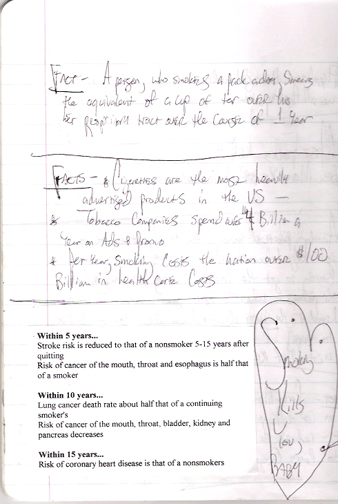 Fact - A person, who smokes a pack a day, smears
the equivalent of a cup of tar over his
her respiratory tract over the course of 1 Year
Facts - * Cigarettes are the most heavily
advertised products in the US —
* Tobacco Companies Spend over $4 Billion a
Year on Ads & Promo
* Per Year, Smoking Costs the Nation over $100
Billion in health care Costs
Within 5 years...
Stroke risk is reduced to that of a nonsmoker 5-15 years after
quitting
Risk of cancer of the mouth, throat and esophagus is half that
of a smoker
Within 10 years...
Lung cancer death rate about half that of a continuing
smoker's
Risk of cancer of the mouth, throat, bladder, kidney and
pancreas decreases
Within 15 years...
Risk of coronary heart disease is that of a nonsmokers
Smoking
Kills
You,
BABY